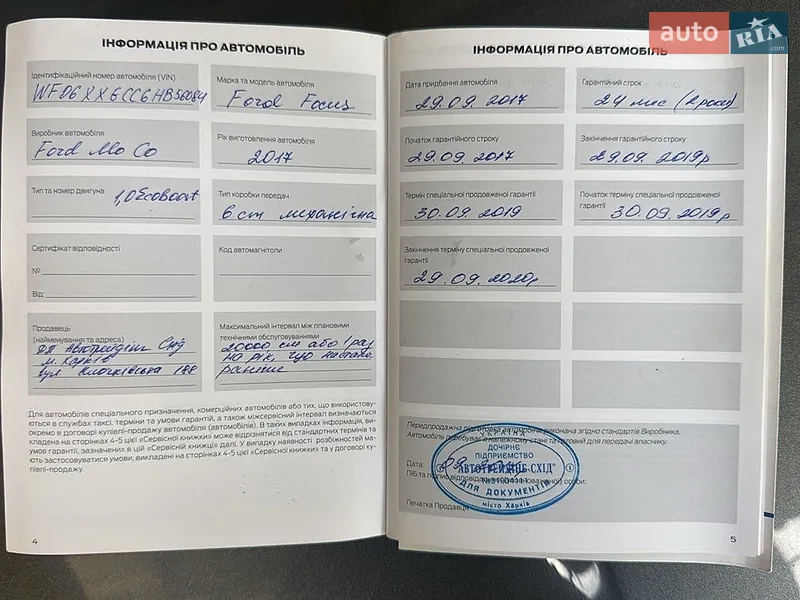 ІНФОРМАЦІЯ ПРО АВТОМОБІЛЬ
Ідентифікаційний номер автомобіля (VIN)
WF06XX6CC6HB56084
Марка та модель автомобіля
Ford Focus
Виробник автомобіля
Ford Mo Co
Рік виготовлення автомобіля
2017
Тип та номер двигуна
1,0 EcoBoost
Тип коробки передач
6 ст механічна
Сертифікат відповідності
№
Від:
Код автомагнітоли
Продавець
(найменування та адреса)
ДП Автотрейдінг Схід
м. Харків
вул Клочківська 188
Максимальний інтервал між плановими
технічними обслуговуваннями
20000 км або 1 раз
на рік, що настане
раніше
Для автомобілів спеціального призначення, комерційних автомобілів або тих, що використову-
ються в службах таксі, терміни та умови гарантій, а також міжсервісний інтервал визначаються
окремо в договорі купівлі-продажу автомобіля (автомобілів). В таких випадках інформація, ви-
кладена на сторінках 4-5 цієї «Сервісної книжки» може відрізнятися від стандартних термінів та
умов гарантій, зазначених в цій «Сервісній книжці» далі. У випадку наявності розбіжностей ма-
ють застосовуватися умови, викладені на сторінках 4-5 цієї «Сервісної книжки» та у договорі ку-
півлі-продажу.
4
ІНФОРМАЦІЯ ПРО АВТОМОБІЛЬ
Дата придбання автомобіля
29.09.2017
Гарантійний строк
24 мес (2 роки)
Початок гарантійного строку
29.09.2017
Закінчення гарантійного строку
29.09.2019р
Термін спеціальної продовженої гарантії
30.09.2019
Початок терміну спеціальної продовженої
гарантії
30.09.2019р
Закінчення терміну спеціальної продовженої
гарантії
29.09.2020р
Передпродажна підготовка автомобіля виконана згідно стандартів Виробника.
Автомобіль перебуває в належному стані та готовий для передачі власнику.
Дата:
ПІБ та підпис відповідальної (уповноваженої) особи:
Печатка Продавця
УКРАЇНА
ДОЧІРНЄ
ПІДПРИЄМСТВО
"АВТОТРЕЙДІНГ-СХІД"
ДЛЯ ДОКУМЕНТІВ
місто Харків
5
auto RIA .com